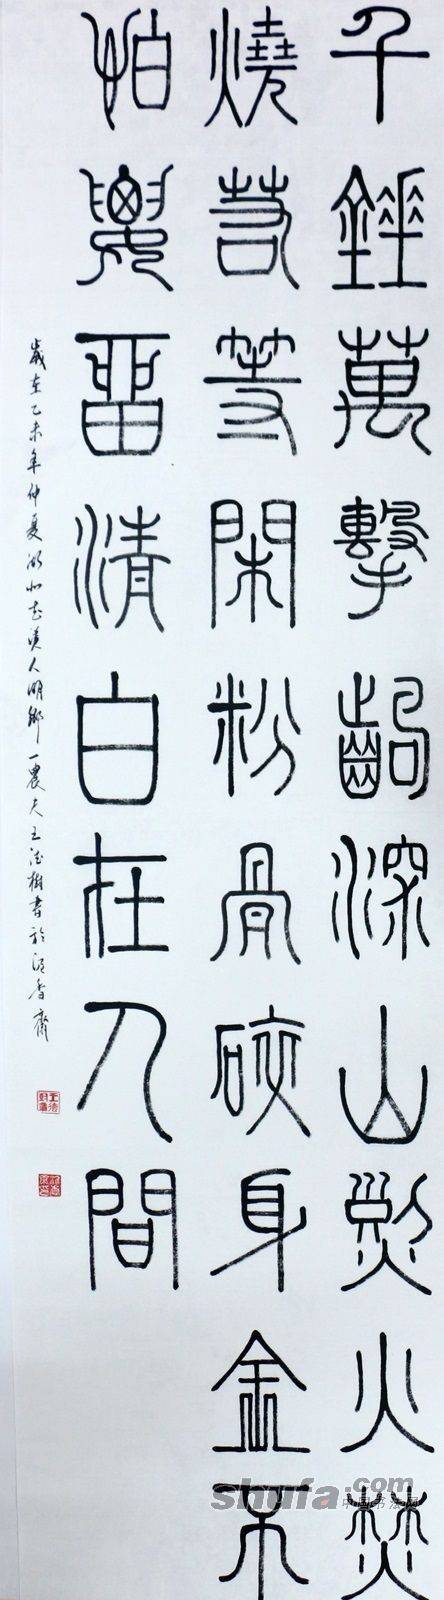 千錘萬擊齣深山烈火焚
燒若等閑粉骨碎身金不
怕要留清白在人間
歲在乙未年仲夏湖北人鄉一農夫王德樹書於香齋
shufa.com
中国书法网